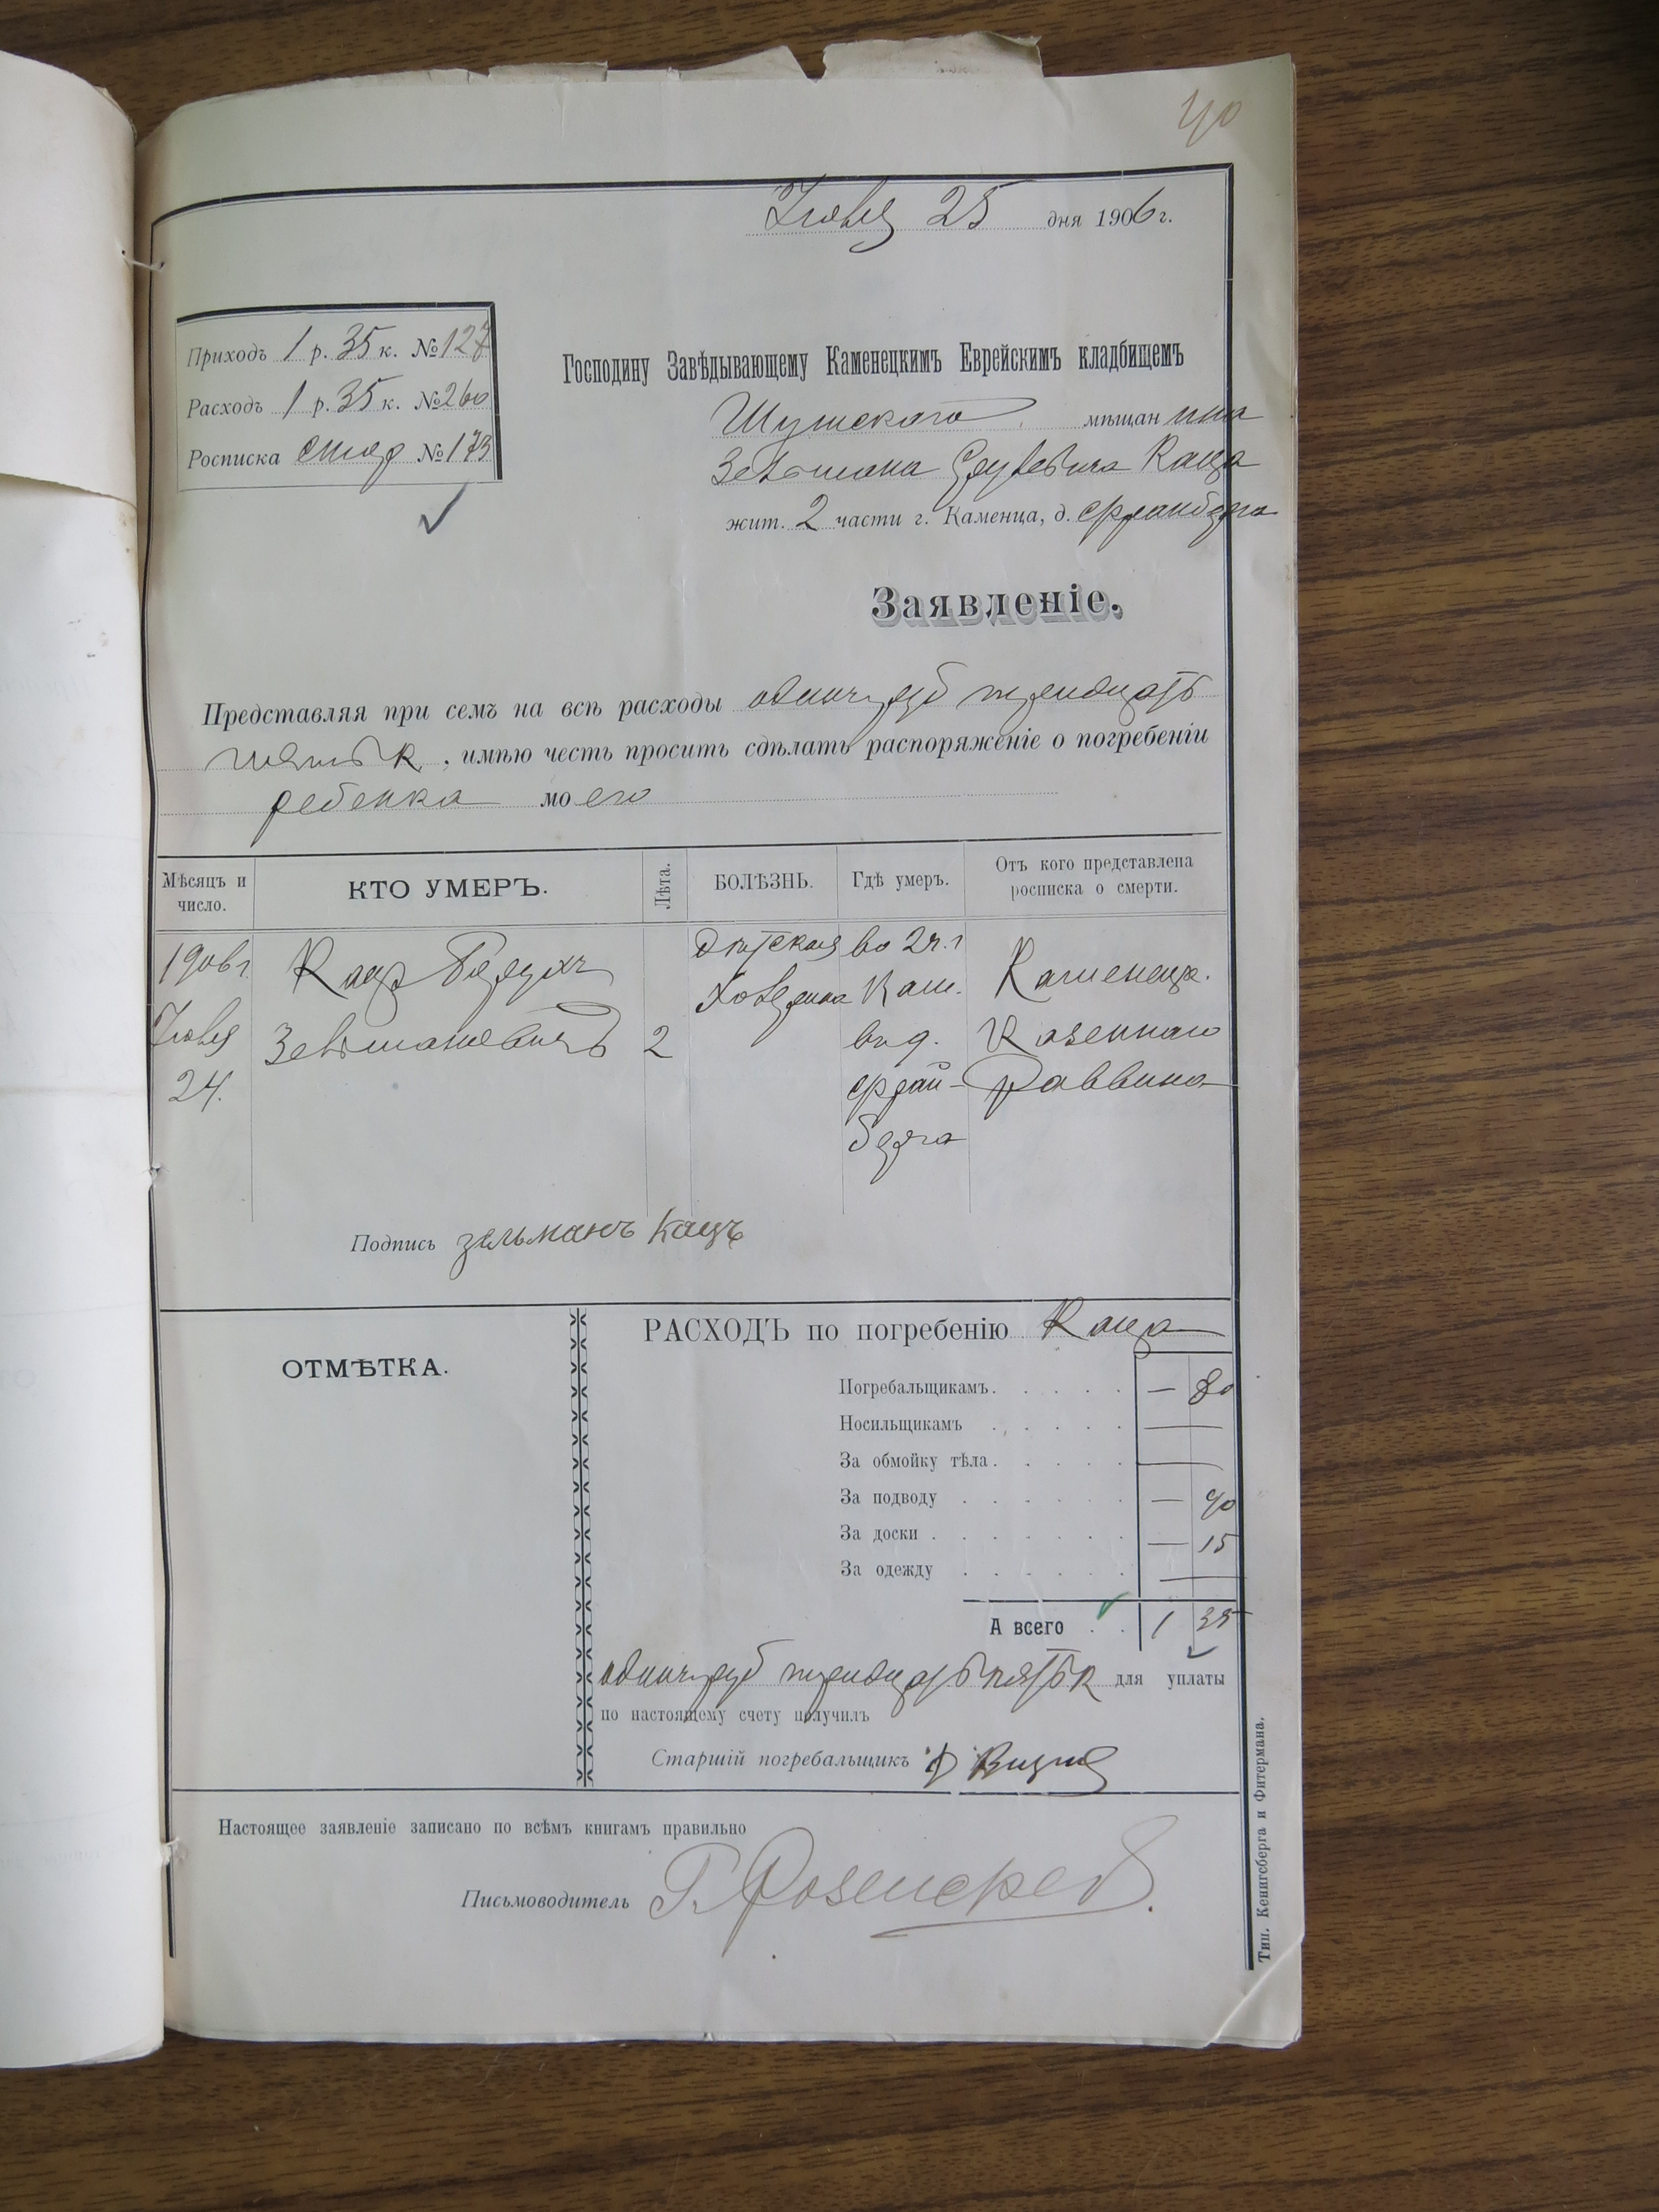 40
Июля 25 дня 1906 г.
Приходъ 1 р. 35 к. № 127
Расходъ 1 р. 35 к. № 260
Росписка № 173
Господину Завѣдывающему Каменецкимъ Еврейскимъ кладбищемъ
мѣщанина
Зельмана Каца
жит. 2 части г. Каменца, д. Фрайберга
Заявленіе.
Представляя при семъ на всѣ расходы одинъ руб тридцать
пять к, имѣю честь просить сдѣлать распоряженіе о погребеніи
ребенка моего
Мѣсяцъ и число.
КТО УМЕРЪ.
Лѣта.
БОЛѢЗНЬ.
Гдѣ умеръ.
Отъ кого представлена росписка о смерти.
1906 г.
Июля
24.
Кацъ
Зельмановичъ
2
Дѣтская
Холерина
во 2 ч. г
Кам.
в д.
Фрай-
берга
Каменецк.
Казеннаго
Раввина
Подпись зельманъ Кацъ
ОТМѢТКА.
РАСХОДЪ по погребенію Каца
Погребальщикамъ. — 80
Носильщикамъ —
За обмойку тѣла. —
За подводу — 40
За доски — 15
За одежду —
А всего 1 35
одинъ руб тридцать пять к для уплаты
по настоящему счету получилъ
Старшій погребальщикъ
Настоящее заявленіе записано по всѣмъ книгамъ правильно
Письмоводитель
Тип. Кенигсберга и Фитермана.